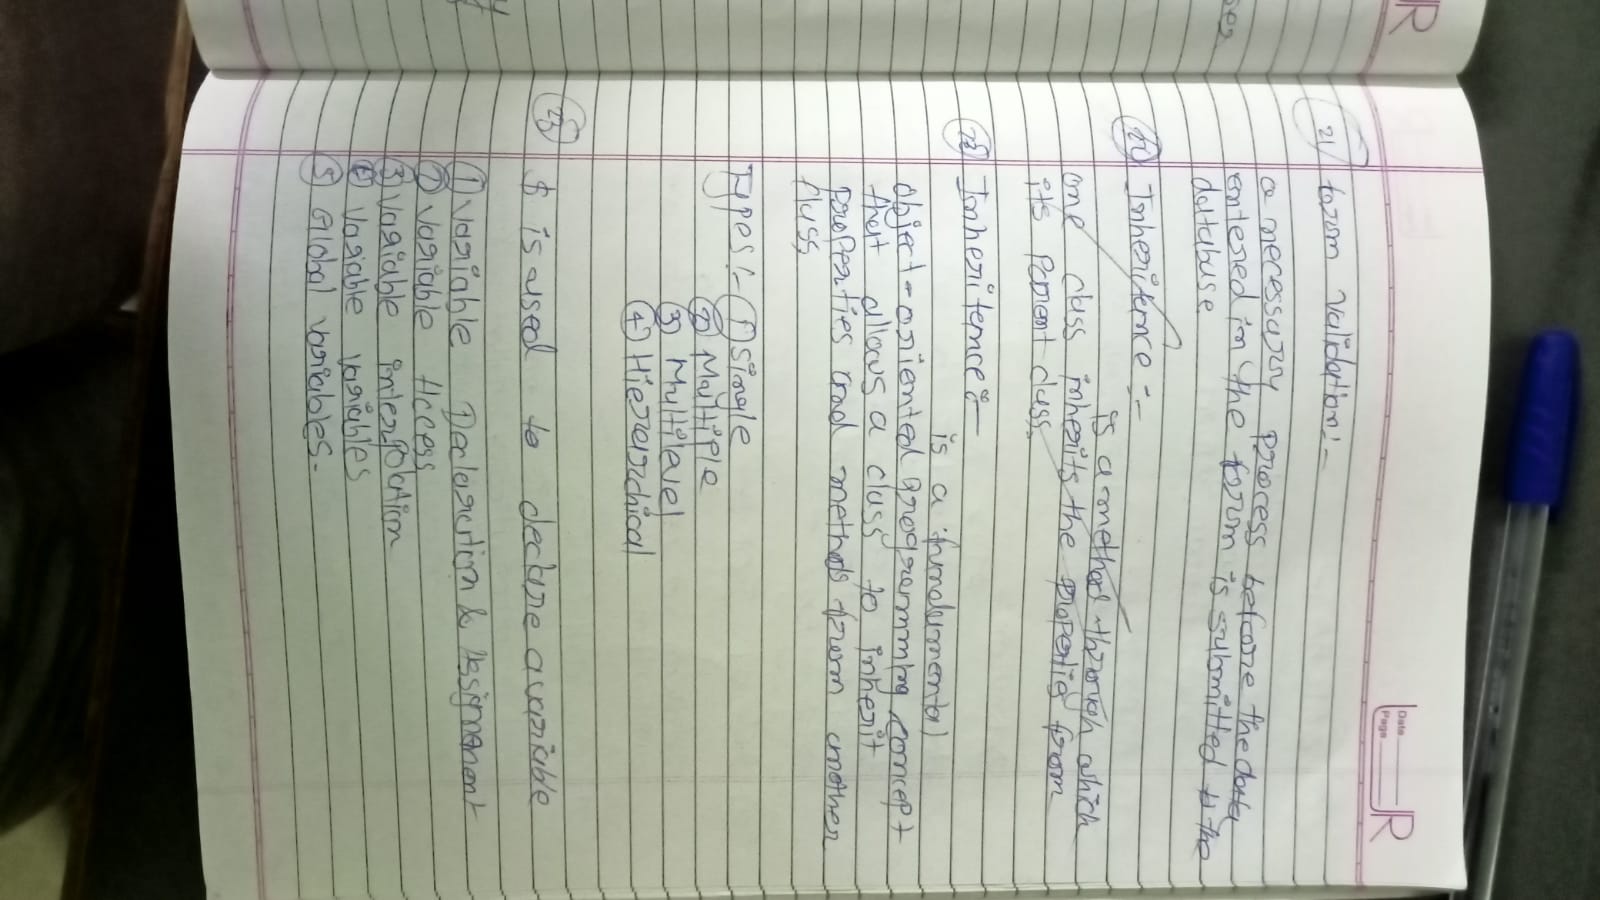 Date
Page
JR
21 form validation:-
a necessary process before the data
entered in the form is submitted to the
database
22 Inheritence :-
is a method through which
one class inherits the propertie from
its Parent class.
Inheritence:-
is a fundumental
object-oriented programming concept
that allows a class to inherit
properties and methods from another
class.
Types :- ① Single
② Multiple
③ Multilevel
④ Hierarchical
23 $ is used to declare a variable
① Variable Declaration & Assignment
② Variable Access
③ Variable interpolation
④ Variable variables
⑤ Global variables.